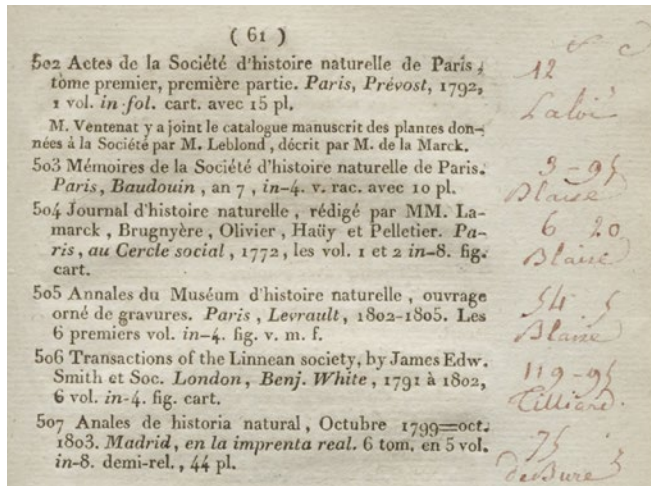 ( 61 )
502 Actes de la Société d'histoire naturelle de Paris,
tome premier, première partie. Paris, Prévost, 1792,
1 vol. in-fol. cart. avec 15 pl.
12
M. Ventenat y a joint le catalogue manuscrit des plantes don-
nées à la Société par M. Leblond, décrit par M. de la Marck.
503 Mémoires de la Société d'histoire naturelle de Paris.
Paris, Baudouin, an 7, in-4. v. rac. avec 10 pl.
3 - 95
Blaise
504 Journal d'histoire naturelle, rédigé par MM. La-
marck, Brugnyère, Olivier, Haüy et Pelletier. Pa-
ris, au Cercle social, 1772, les vol. 1 et 2 in-8. fig.
cart.
6 20
Blaise
505 Annales du Muséum d'histoire naturelle, ouvrage
orné de gravures. Paris, Levrault, 1802-1805. Les
6 premiers vol. in-4. fig. v. m. f.
54 5
Blaise
506 Transactions of the Linnean society, by James Edw.
Smith et Soc. London, Benj. White, 1791 à 1802,
6 vol. in-4. fig. cart.
119 - 95
Tilliard.
507 Anales de historia natural, Octubre 1799=oct.
1803. Madrid, en la imprenta real. 6 tom. en 5 vol.
in-8. demi-rel., 44 pl.
75 5
de Bure